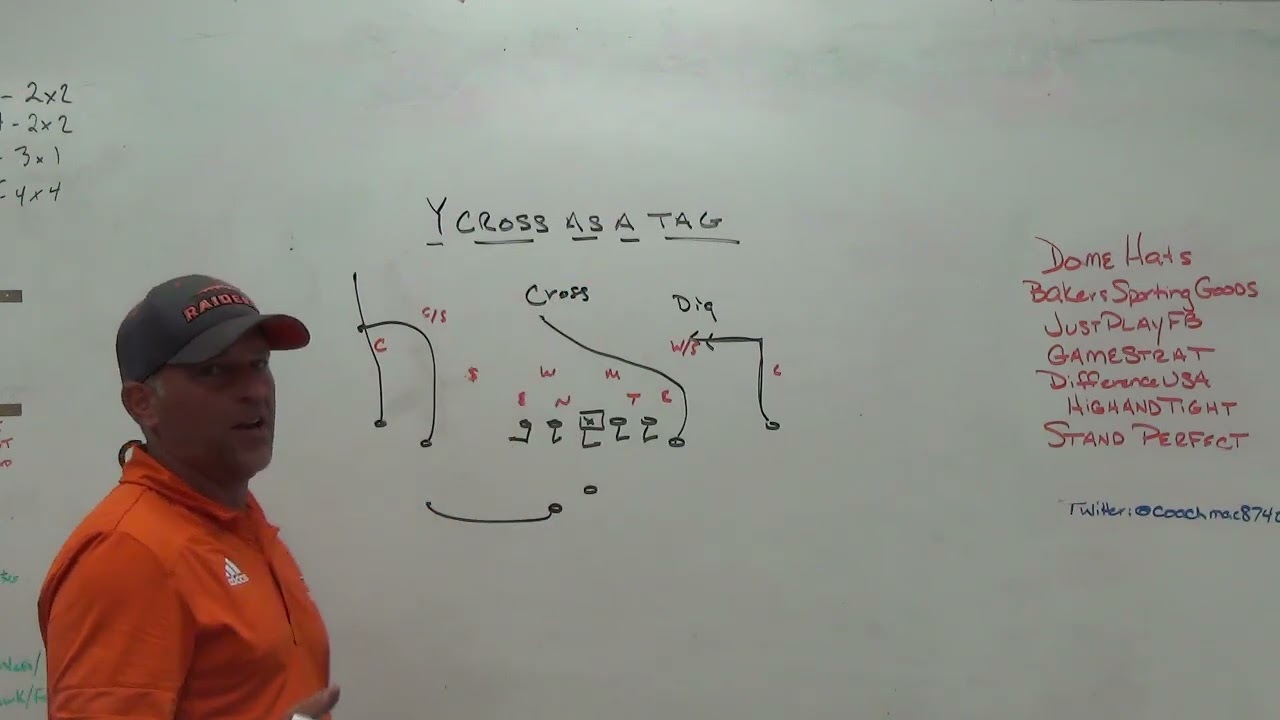 - 2x2
- 2x2
- 3x1
4x4
Y CROSS AS A TAG
Cross
Dig
C/S
C
W/S
C
$
W
M
E
N
T
E
X
RAIDE
adidas
Dome Hats
Bakers Sporting Goods
JUSTPLAYFB
GAMESTRAT
DifferenceUSA
HIGHANDTIGHT
STAND PERFECT
Twitter:@coachmac8740